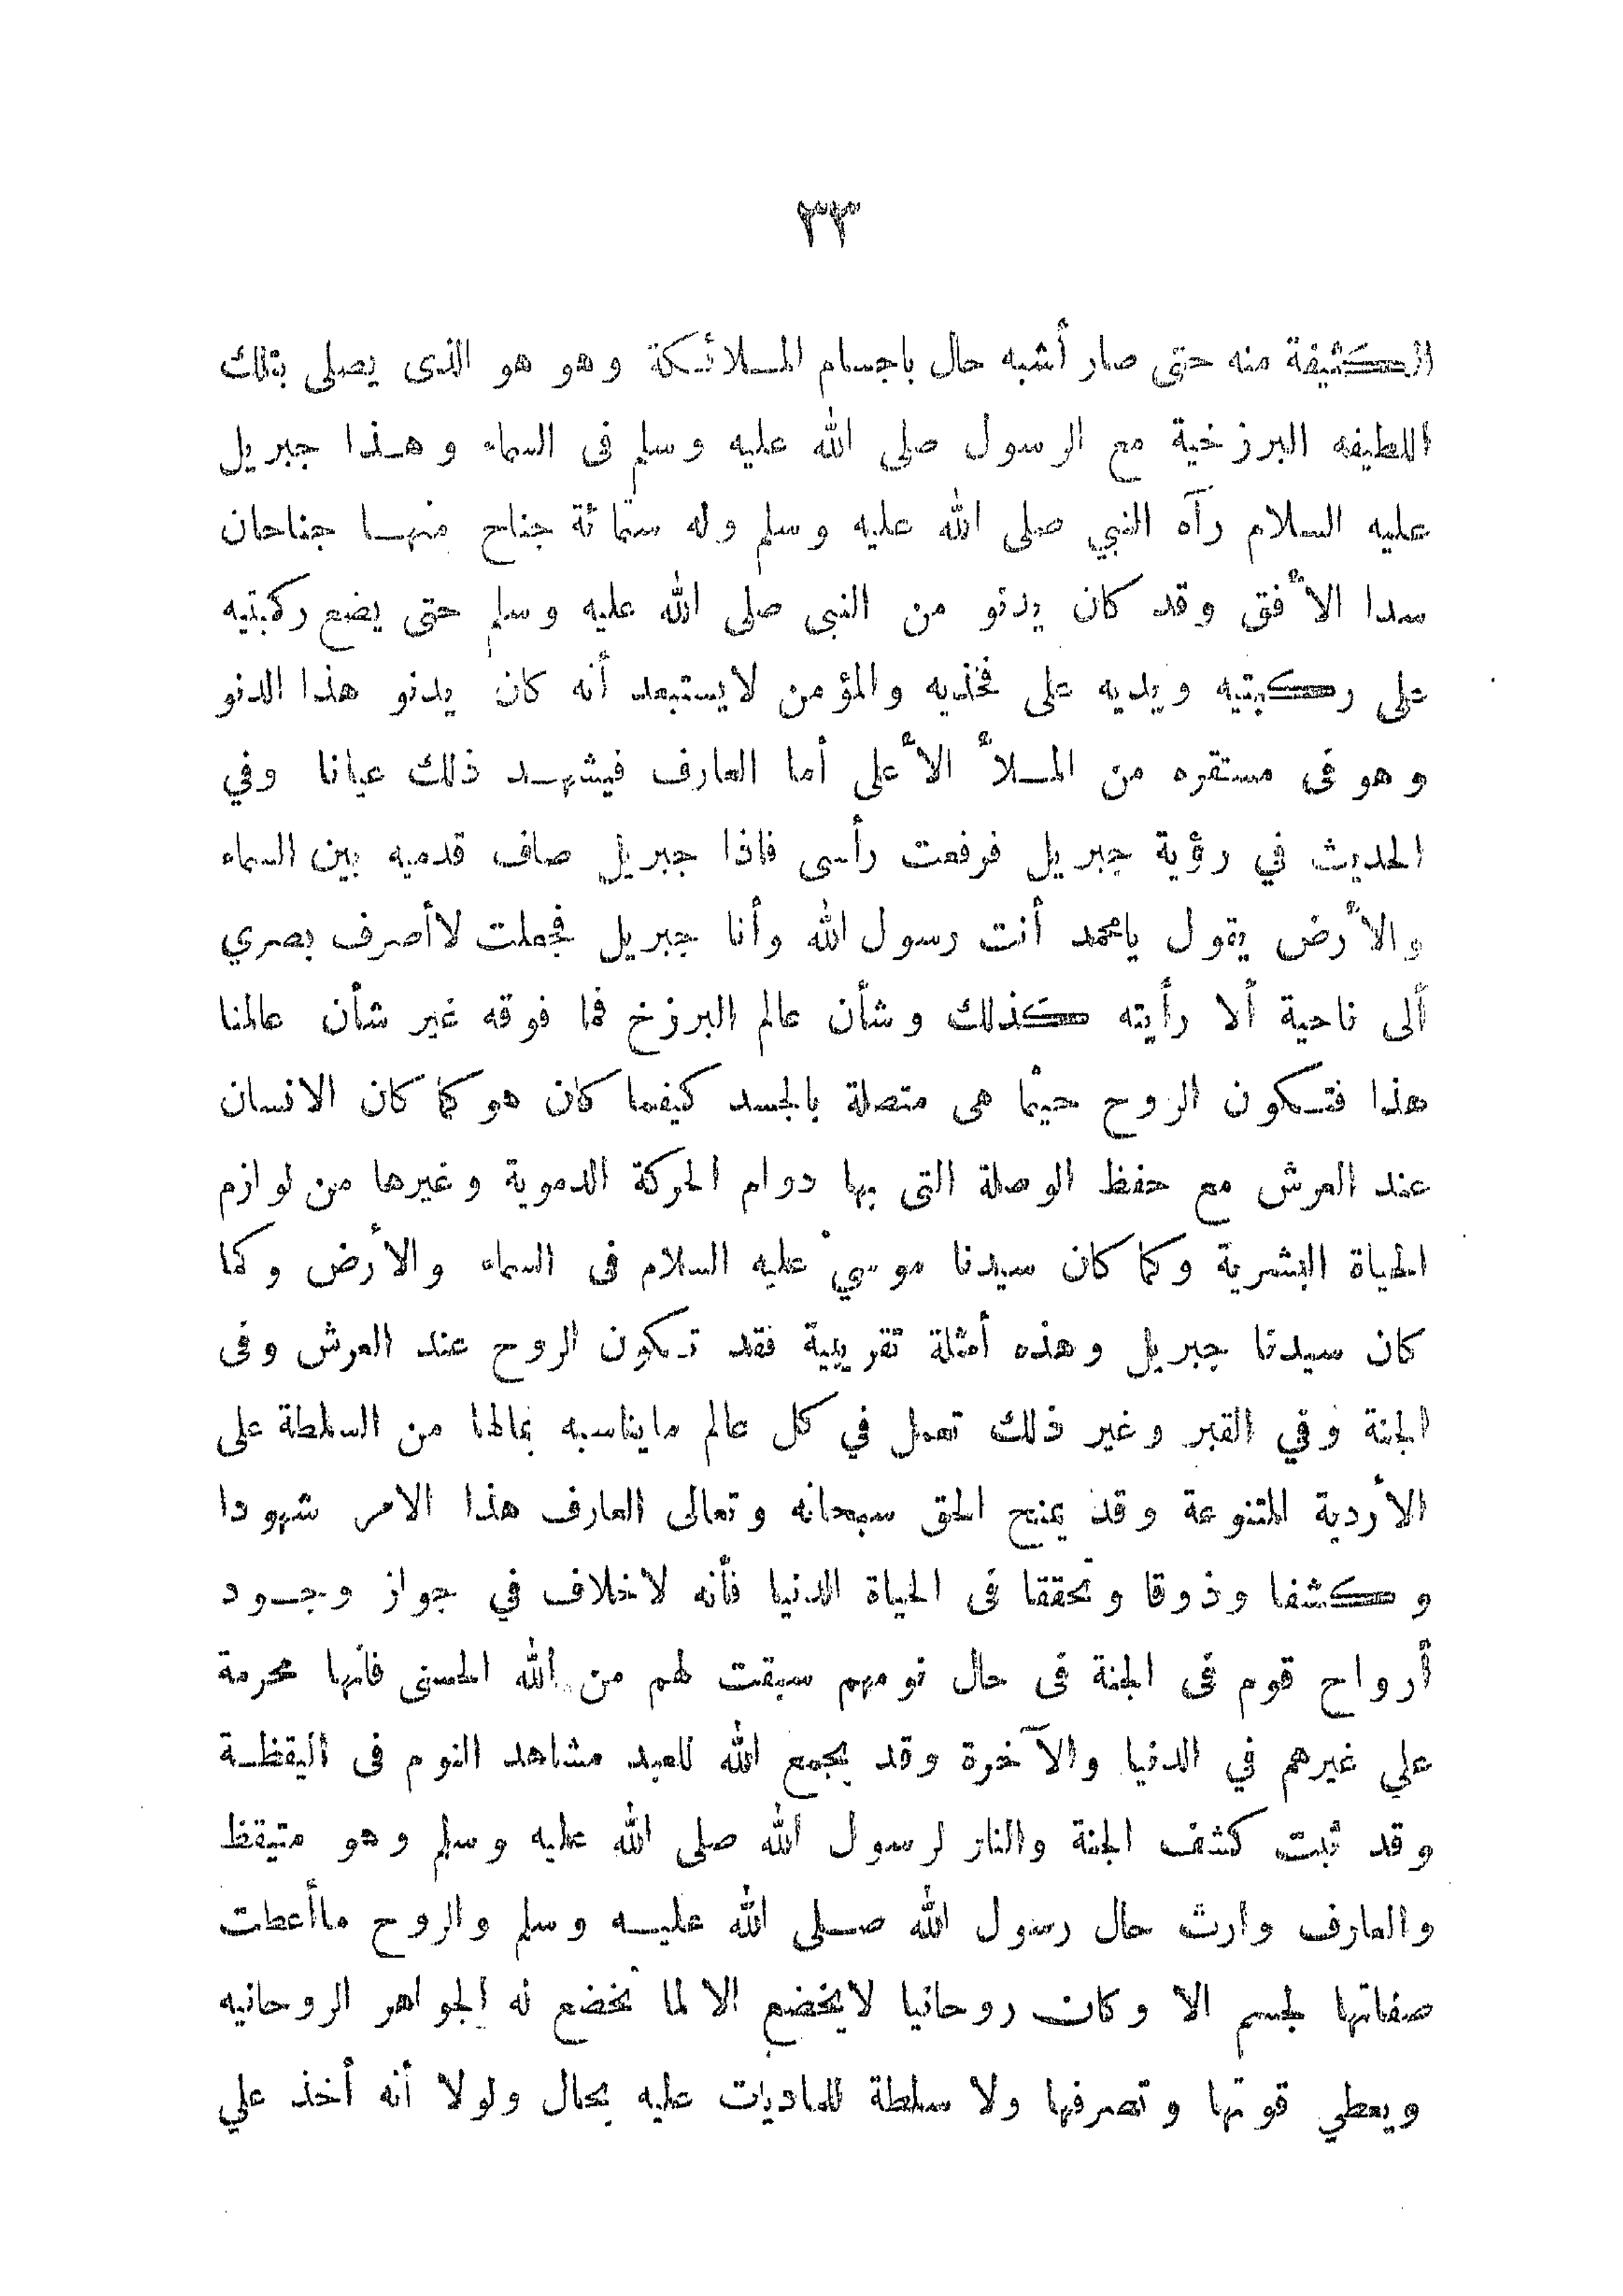 ٣٣
الكثيفة منه حتى صار أشبه حال باجسام الملائكة وهو هو الذى يصلى بتلك
اللطيفه البرزخية مع الرسول صلى الله عليه وسلم فى السماء وهذا جبريل
عليه السلام رآه النبي صلى الله عليه وسلم وله ستمائة جناح منها جناحان
سدا الأفق وقد كان يدنو من النبى صلى الله عليه وسلم حتى يضع ركبتيه
على ركبتيه ويديه على فخذيه والمؤمن لايستبعد أنه كان يدنو هذا الدنو
وهو فى مستقره من الملأ الأعلى أما العارف فيشهد ذلك عيانا وفي
الحديث في رؤية جبريل فرفعت رأسى فاذا جبريل صاف قدميه بين السماء
والأرض يقول يامحمد أنت رسول الله وأنا جبريل فجعلت لاأصرف بصري
ألى ناحية ألا رأيته كذلك وشأن عالم البرزخ فما فوقه غير شأن عالمنا
هذا فتكون الروح حيثما هى متصلة بالجسد كيفما كان هو كما كان الانسان
عند العرش مع حفظ الوصلة التى بها دوام الحركة الدموية وغيرها من لوازم
الحياة البشرية وكما كان سيدنا موسي عليه السلام فى السماء والأرض وكما
كان سيدنا جبريل وهذه أمثلة تقريبية فقد تكون الروح عند العرش وفى
الجنة وفي القبر وغير ذلك تعمل في كل عالم مايناسبه بمالها من السلطة على
الأردية المتنوعة وقد يمنح الحق سبحانه وتعالى العارف هذا الامر شهودا
وكشفا وذوقا وتحققا فى الحياة الدنيا فأنه لاخلاف في جواز وجود
أرواح قوم فى الجنة فى حال نومهم سبقت لهم من الله الحسنى فأنها محرمة
علي غيرهم في الدنيا والآخرة وقد يجمع الله للعبد مشاهد النوم فى اليقظة
وقد ثبت كشف الجنة والنار لرسول الله صلى الله عليه وسلم وهو متيقظ
والعارف وارث حال رسول الله صلى الله عليه وسلم والروح ماأعطت
صفاتها لجسم الا وكان روحانيا لايخضع الا لما تخضع له الجواهر الروحانيه
ويعطي قوتها وتصرفها ولا سلطة للماديات عليه بحال ولولا أنه أخذ علي